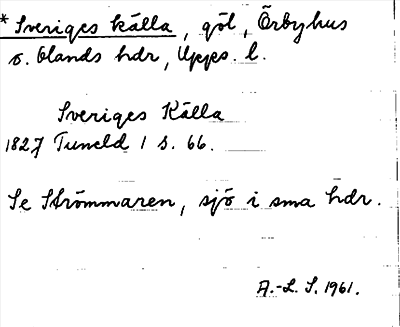 * Sveriges källa, göl, Örbyhus
s. Olands hdr, Upps. l.
Sveriges Källa
1827 Tuneld 1 s. 66.
Se Strömmaren, sjö i sma hdr.
A.-L. S. 1961.